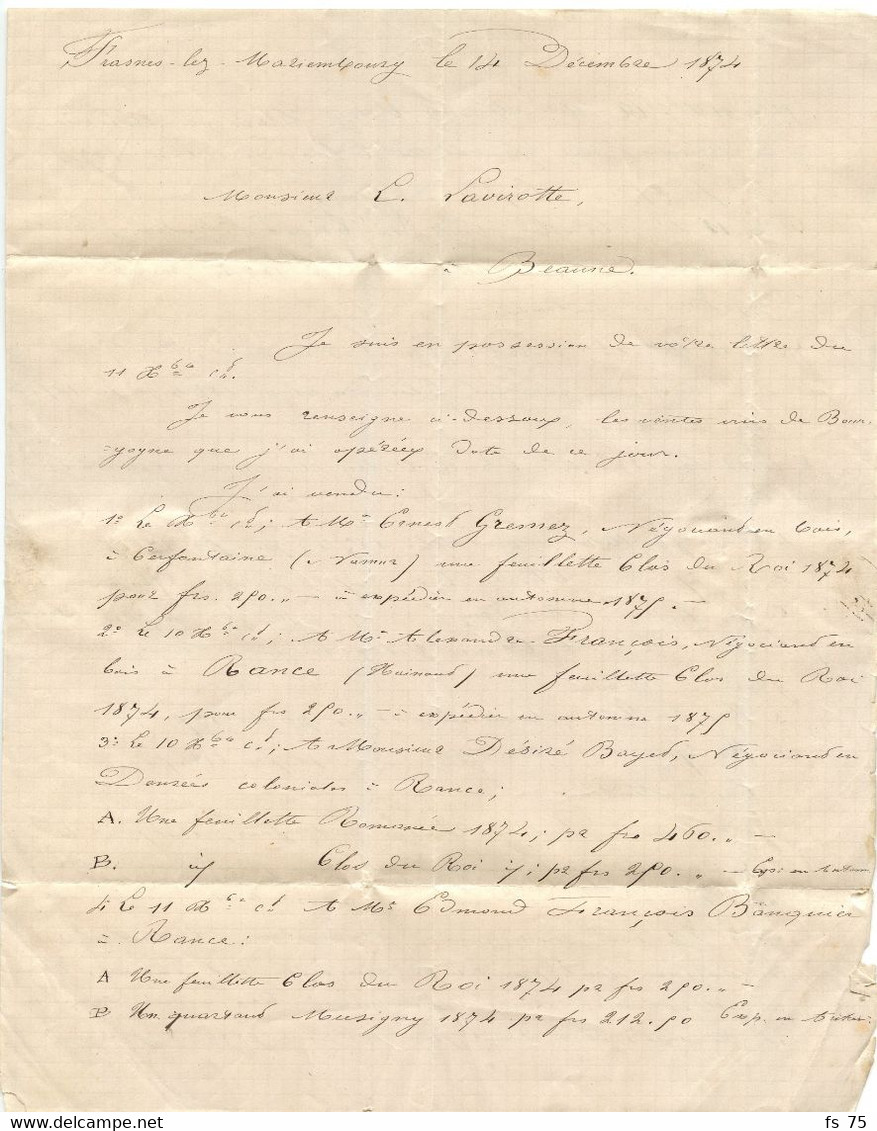 Frasnes-lez-Mariembourg le 14 Décembre 1874
Monsieur L. Lavirotte,
à Beaune.
Je suis en possession de votre lettre du
11 Xbre ct.
Je vous renseigne ci-dessous, les ventes vins de Bour-
=gogne que j'ai opérées date de ce jour.
J'ai vendu:
1° Le Xbre ct; A Mr Ernest Gressez, Négociand en bois,
à Cerfontaine (Namur) une feuillette Clos du Roi 1874
pour frs. 250. „ — à expédier en automne 1875. —
2° Le 10 Xbre ct; A Mr Alexandre François, Négociand en
bois à Rance (Hainaud) une feuillette Clos du Roi
1874, pour frs 250. „ — à expédier en automne 1875
3° Le 10 Xbre ct; A Monsieur Désiré Bayed, Négociand en
Denrées coloniales à Rance;
A. Une feuillette Romanée 1874; pr frs 460. „ —
B. id Clos du Roi id; pr frs 250. „ — Exp: en Automn
4° Le 11 Xbre ct A Mr Edmond François Banquier
à Rance:
A Une feuillette Clos du Roi 1874 pr frs 250. „ —
B Un quartaud Musigny 1874 pr frs 212.50 Exp. en
fs 75